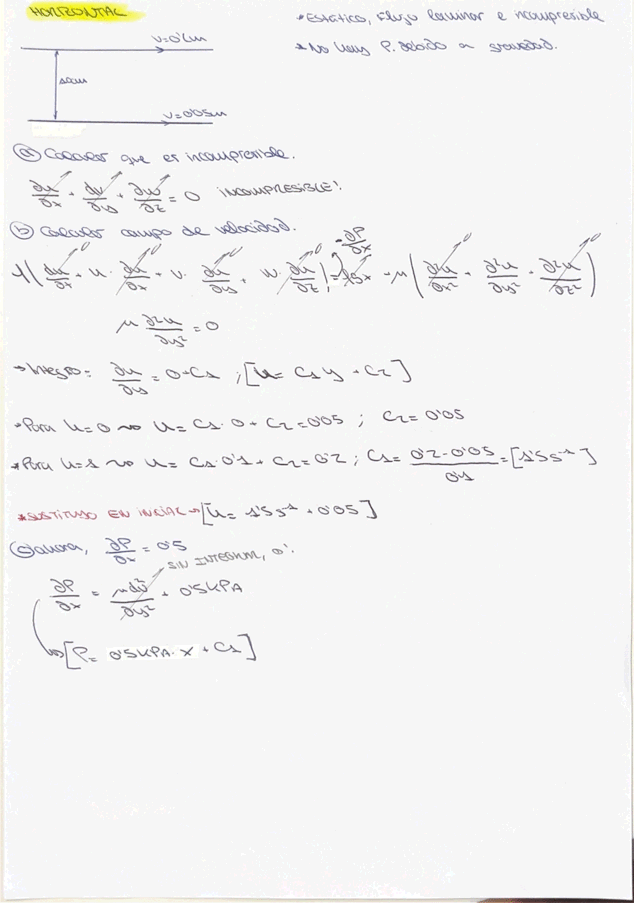 HORIZONTAL
*Estático, flujo laminar e incompresible
*No hay P. debido a gravedad.
10cm
V=0'05m
ⓐ Calcular que es incompresible.
∂u/∂x + ∂v/∂y + ∂w/∂z = 0 INCOMPRESIBLE!
ⓑ Calcular campo de velocidad.
-∂P/∂x
μ ∂²u/∂y² = 0
→Integro= ∂u/∂y = 0+C1 ; [u= C1 y + C2]
*Para u=0 ~> u= C1·0 + C2 = 0'05 ; C2= 0'05
*Para u=1 ~> u= C1·0'1 + C2 = 0'2 ; C1= 0'2-0'05/0'1 = [1'5s⁻¹]
*SUSTITUYO EN INICIAL→[u= 1'5s⁻¹ + 0'05]
ⓒ ahora, ∂P/∂x = 0'5
SIN INTEGRAL, 0!
∂P/∂x = μ∂²u/∂y² + 0'5KPA
→[P= 0'5KPA·X + C1]